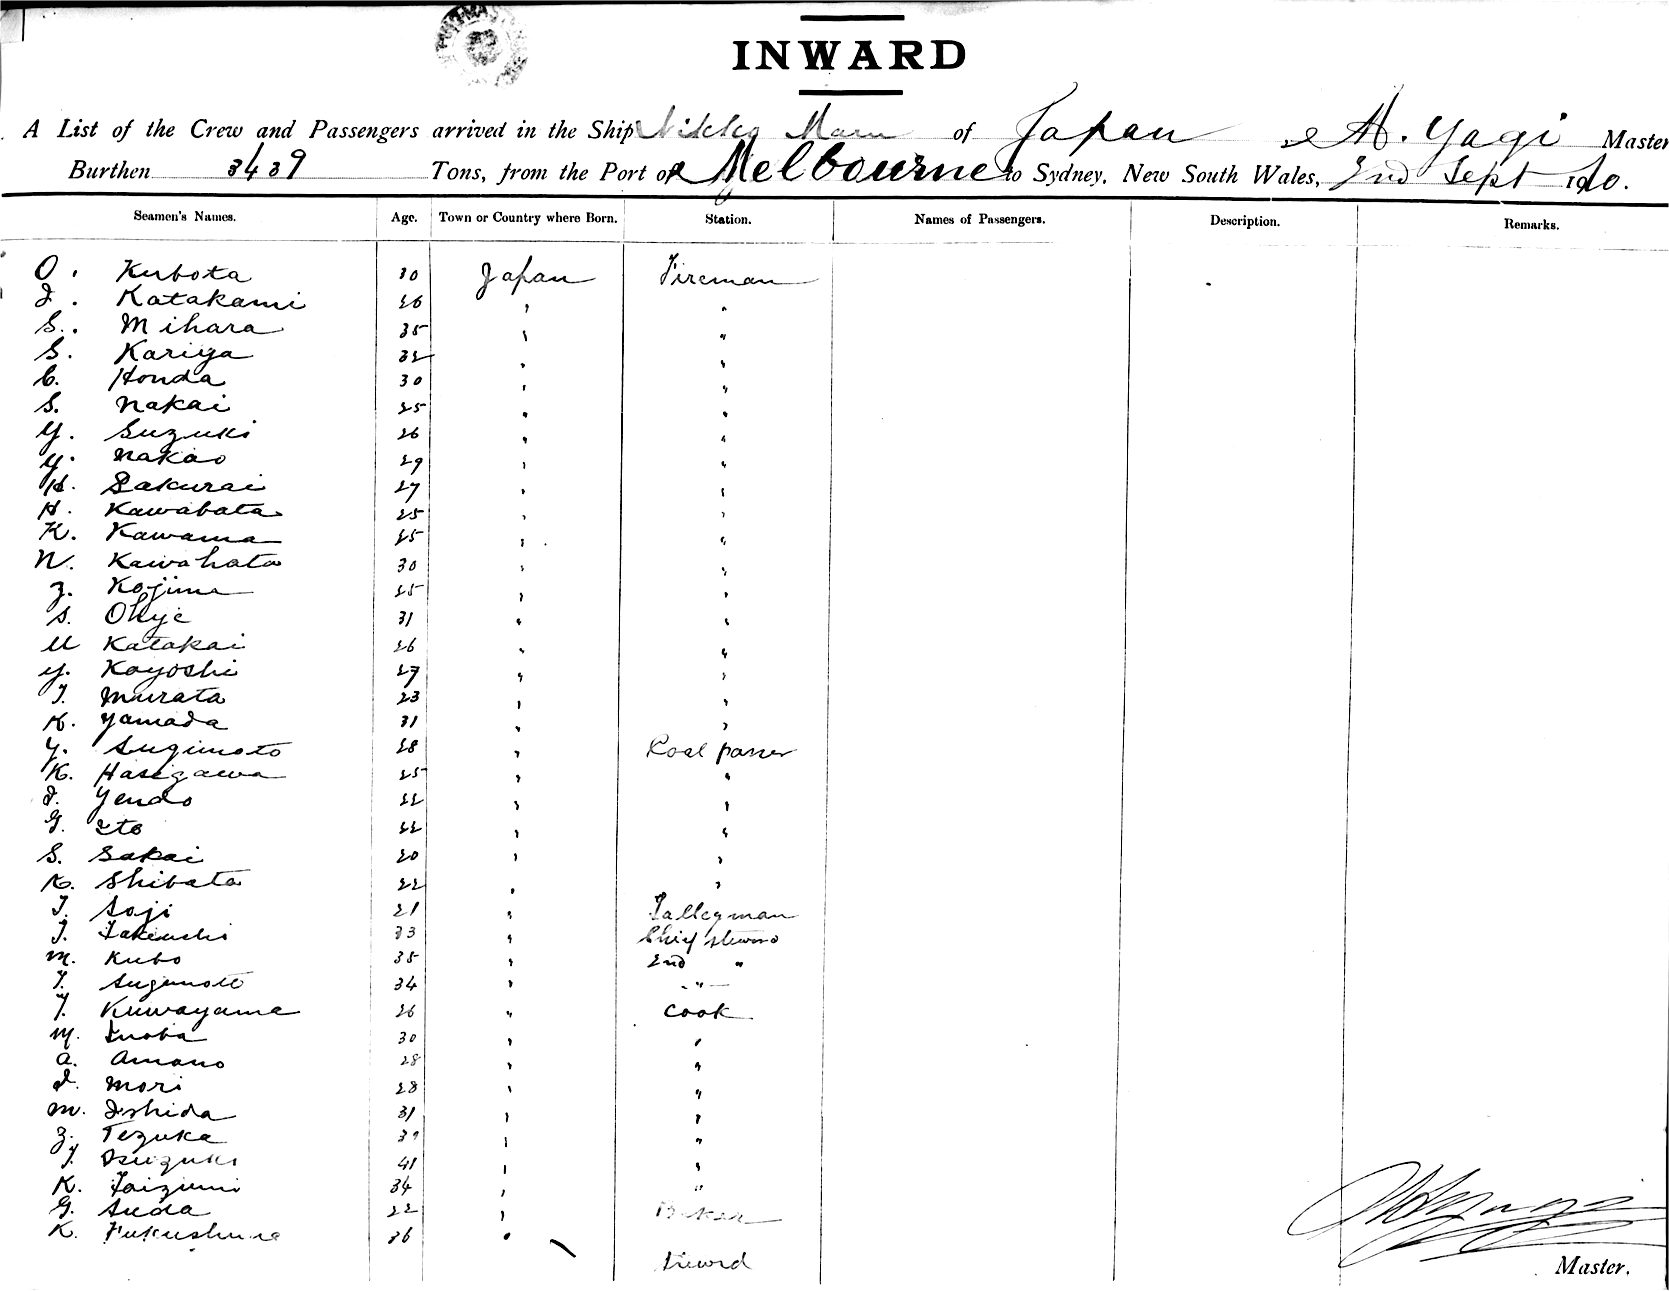 INWARD
A List of the Crew and Passengers arrived in the Ship Nikko Maru of Japan A. Yagi Master
Burthen 3439 Tons, from the Port of Melbourne to Sydney, New South Wales, 2nd Sept 1910.
Seamen's Names. Age. Town or Country where Born. Station. Names of Passengers. Description. Remarks.
O. Kubota 30 Japan Fireman
I. Katakami 26 " "
S. Mihara 35 " "
S. Kariya 32 " "
C. Honda 30 " "
S. Nakai 25 " "
Y. Suzuki 26 " "
Y. Nakao 29 " "
H. Sakurai 27 " "
H. Kawabata 25 " "
K. Kawama 25 " "
N. Kawahata 30 " "
Z. Kojima 25 " "
S. Okuje 31 " "
U Katakai 26 " "
Y. Koyoshi 27 " "
T. Murata 23 " "
K. Yamada 31 " "
Y. Sugimoto 28 " Koal passer
K. Hasegawa 25 " "
I. Yendo 22 " "
G. Ito 22 " "
S. Sakai 20 " "
K. Shibata 22 " "
T. Soji 21 "
T. Takeuchi 33 " Chief steward
M. Kubo 35 " 2nd "
T. Sugimoto 34 " "
T. Kuwayama 26 " Cook
M. Inoba 30 " "
A. Amano 28 " "
I. Mori 28 " "
M. Ishida 31 " "
Z. Tezuka 39 " "
T. Tsuzuki 41 " "
K. Iaizumi 34 " "
G. Suda 22 " Baker
K. Fukushima 36 "
Steward
Master.